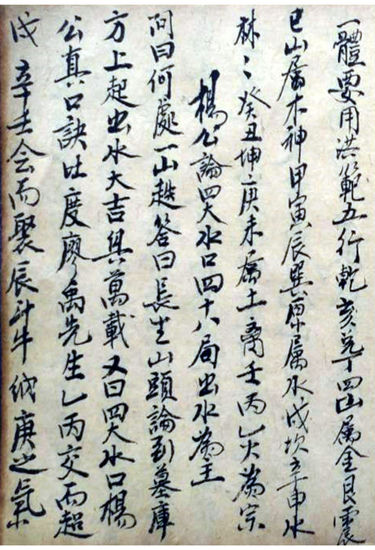 一體要用洪範五行乾亥兌丁四山屬金艮震
巳山屬木神甲寅辰巽屬水戌坎辛申水
林〻癸丑坤〻庚未屬土离壬丙乙火為宗
楊公論四大水口四十八局出水為主
问曰何處一山趂答曰長生山頭論到墓庫
方上起出水大吉興萬載又曰四大水口楊
公真口訣吐度廖禹先生乙丙交而趨
戌辛壬会而聚辰斗牛纳庚之氣